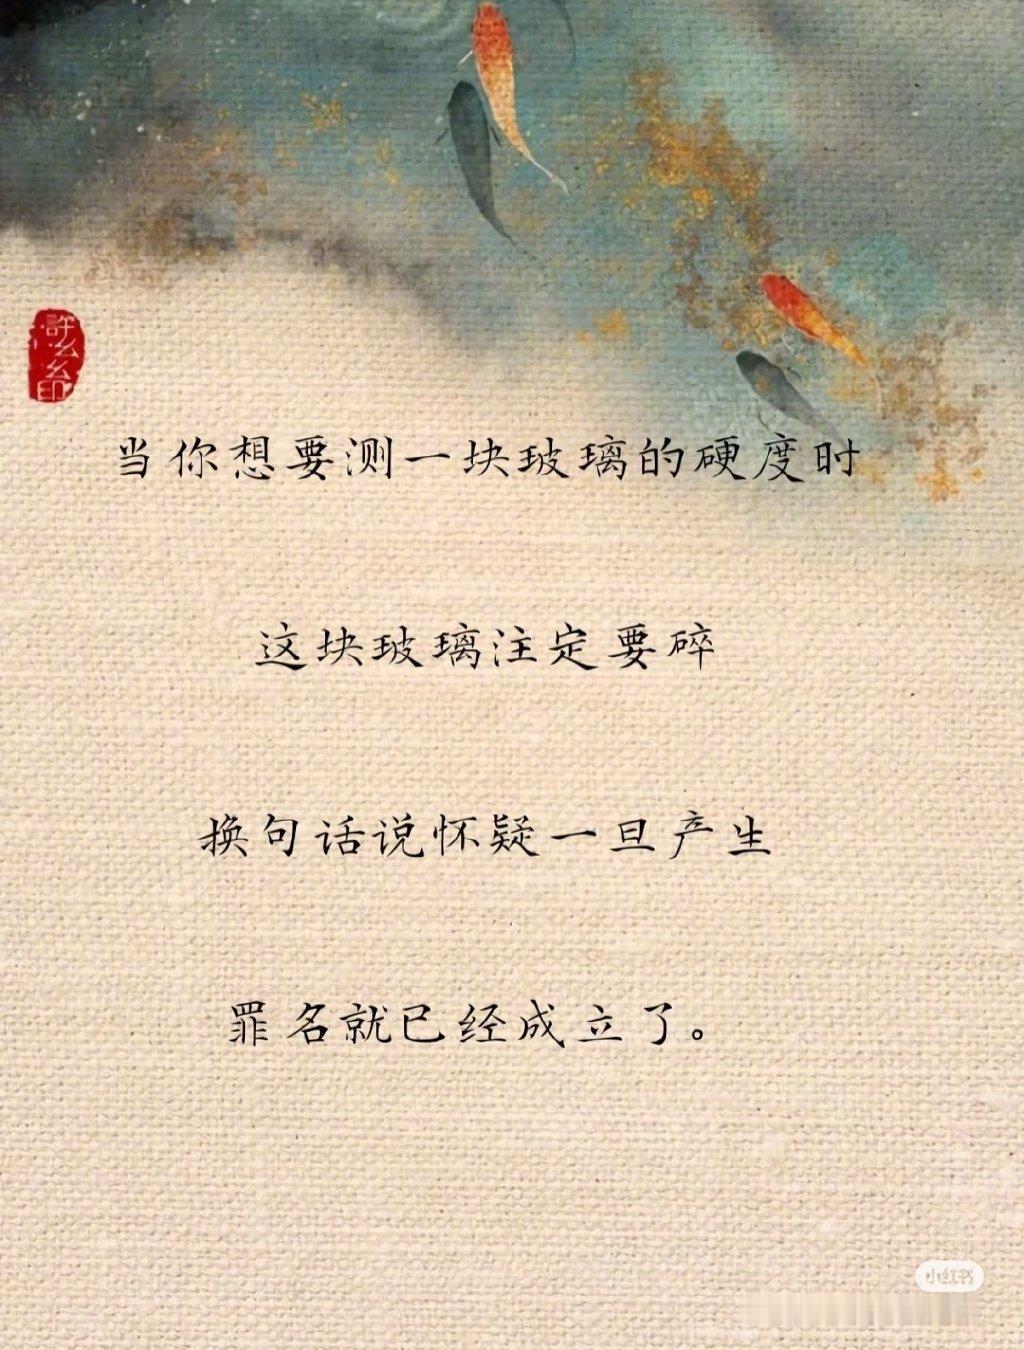 当你想要测一块玻璃的硬度时
这块玻璃注定要碎
换句话说怀疑一旦产生
罪名就已经成立了。
小红书